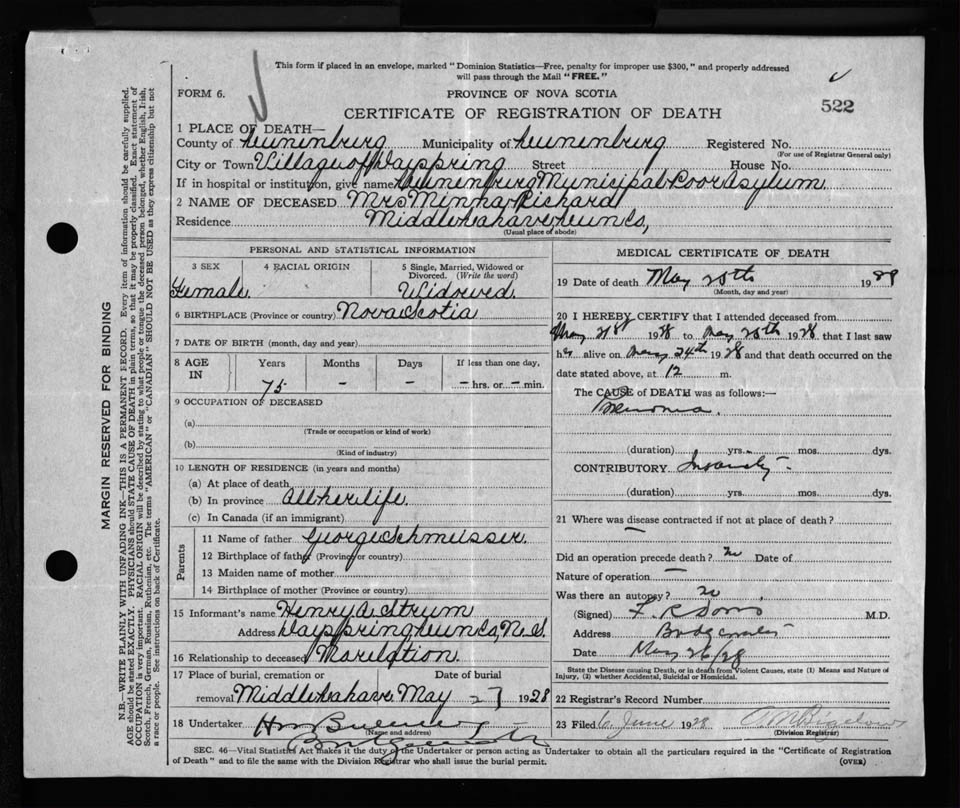 This form if placed in an envelope, marked "Dominion Statistics—Free, penalty for improper use $300," and properly addressed
will pass through the Mail "FREE."
FORM 6.
PROVINCE OF NOVA SCOTIA
522
CERTIFICATE OF REGISTRATION OF DEATH
1 PLACE OF DEATH—
County of Lunenburg Municipality of Lunenburg Registered No.
(For use of Registrar General only)
City or Town Village of Dayspring Street House No.
If in hospital or institution, give name Lunenburg Municipal Poor Asylum
2 NAME OF DECEASED Mrs Minna Richard
Residence Middle Lahave Lun Co,
(Usual place of abode)
PERSONAL AND STATISTICAL INFORMATION
3 SEX
4 RACIAL ORIGIN
5 Single, Married, Widowed or Divorced. (Write the word)
Female. Widowed.
6 BIRTHPLACE (Province or country) Nova Scotia
7 DATE OF BIRTH (month, day and year)
8 AGE IN Years Months Days If less than one day,
75 – – – hrs. or – min.
9 OCCUPATION OF DECEASED
(a)
(Trade or occupation or kind of work)
(b)
(Kind of industry)
10 LENGTH OF RESIDENCE (in years and months)
(a) At place of death
(b) In province All her life.
(c) In Canada (if an immigrant)
Parents
11 Name of father George Schmeisser
12 Birthplace of father (Province or country)
13 Maiden name of mother
14 Birthplace of mother (Province or country)
15 Informant's name Henry A. Strum
Address Dayspring Lun Co, N. S.
16 Relationship to deceased No relation.
17 Place of burial, cremation or removal Date of burial
Middle Lahave. May 27 1928
18 Undertaker
(Name and address)
MEDICAL CERTIFICATE OF DEATH
19 Date of death May 25th 19
(Month, day and year)
20 I HEREBY CERTIFY that I attended deceased from
May 21st 1928 to May 25th 1928 that I last saw
her alive on May 24th 1928 and that death occurred on the
date stated above, at 12 m.
The CAUSE of DEATH was as follows:—
(duration) yrs. mos. dys.
CONTRIBUTORY Insanity –
(duration) yrs. mos. dys.
21 Where was disease contracted if not at place of death?
—
Did an operation precede death? no Date of
Nature of operation —
Was there an autopsy? no
(Signed) M.D.
Address Bridgewater
Date May 26/28
State the Disease causing Death, or in death from Violent Causes, state (1) Means and Nature of
Injury, (2) whether Accidental, Suicidal or Homicidal.
22 Registrar's Record Number
23 Filed 6 June 1928 Bigelow
(Division Registrar)
SEC. 46—Vital Statistics Act makes it the duty of the Undertaker or person acting as Undertaker to obtain all the particulars required in the "Certificate of Registration
of Death" and to file the same with the Division Registrar who shall issue the burial permit.
(OVER)
MARGIN RESERVED FOR BINDING
N.B.—WRITE PLAINLY WITH UNFADING INK—THIS IS A PERMANENT RECORD. Every item of information should be carefully supplied.
AGE should be stated EXACTLY. PHYSICIANS should STATE CAUSE OF DEATH in plain terms, so that it may be properly classified. Exact statement of
OCCUPATION is very important. RACIAL ORIGIN will be described by stating to what people or tongue the deceased person belonged, whether English, Irish,
Scotch, French, German, Russian, Ruthenian, etc. The terms "AMERICAN" or "CANADIAN" SHOULD NOT BE USED as they express citizenship but not
a race or people. See instructions on back of Certificate.